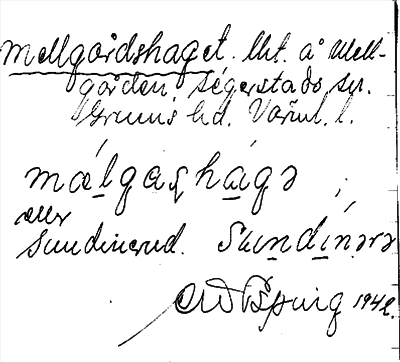 Mellgårdshaget. Lht. å Mell-
gården Segerstads sn.
Grums hd. Värml. l.
mǽlgaṣhágə ;
eller
Sundinerud. Sundínərə
1942.